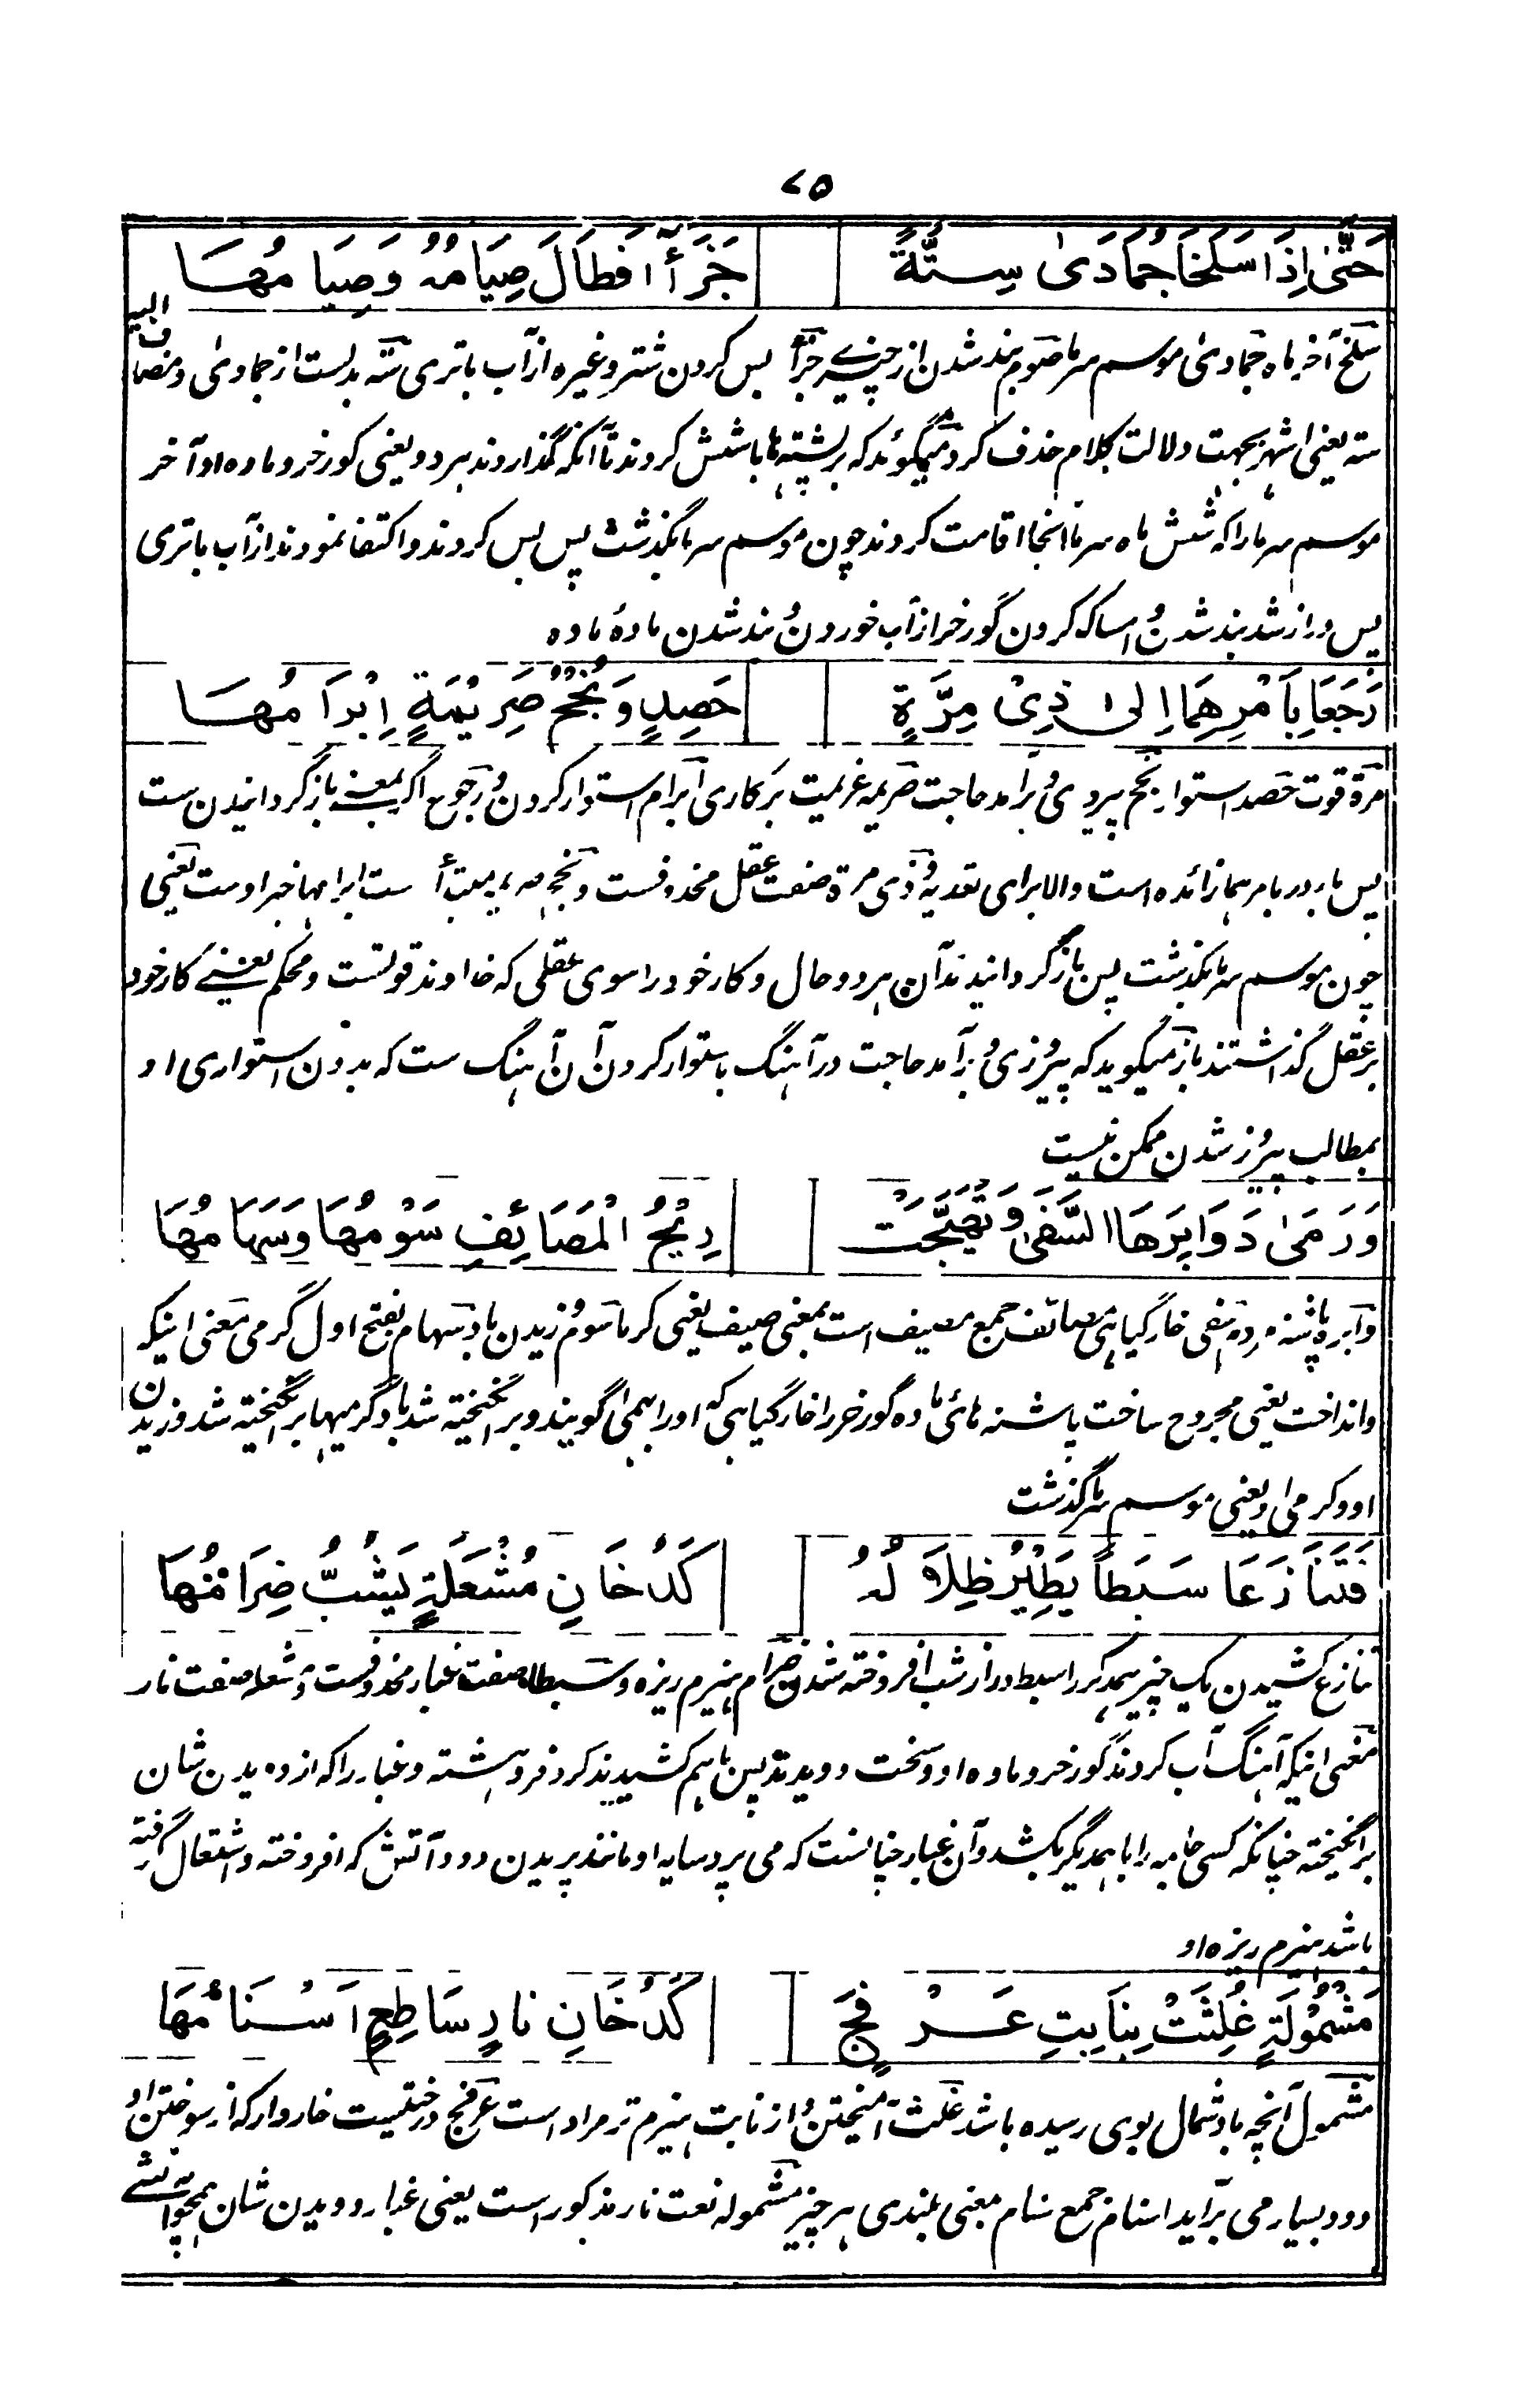 ۷۵
حَتّٰى اِذَا سَلَخَا جُمَادَى سِتَّةً جَزَأَ افَطَالَ صِيَامُهُ وَصِيَا مُهَا
سلخ آخر ماه جمادی موسم سرما صوم بند شدن از چیزے جزأ بس کردن شتر و غیره از آب باتری ستة بدلست از جمادی و مضاف الیه
سته یعنی اشهر بجهت دلالت کلام حذف کرد میگوئد که بر پشته ها باشش کردند تا آنکه گذاردند هر دو یعنی گورخر و ماده او آخر
موسم سرما را که شش ماه سرما آنجا اقامت کردند چون موسم سرما بگذشت پس بس کردند و اکتفا نمودند از آب باتری
پس دراز شد بند شدن و امساک کردن گورخر از آب خوردن و بند شدن مادهٔ ماده
رَجَعَا بِاَمْرِهِمَا اِلىٰ ذِىْ مِرَّةٍ حَصِدٍ وَنُجْحُ صَرِيْمَةٍ اِبْرَا مُهَا
مرة قوت حصد استوار نجح پیروزی و برآمد حاجت صریمه عزیمت بر کاری ابرام استوار کردن و رجوع اگر بمعنی باز گردانیدن ست
پس با در بامرهما زائده است والا برای تعدیه و ذی مرة صفت عقل محذوفست و نجح صریمه مبتدأ ست ابرامها خبر اوست یعنی
چون موسم سرما بگذشت پس باز گردانیدند آن هر دو حال و کار خود را سوی عقلی که خداوند قوتست و محکم یعنے کار خود
بر عقل گذاشتند باز میگوید که پیروزی و برآمد حاجت در آهنگ باستوار کردن آن آهنگ ست که بدون استواری او
بمطالب پیروز شدن ممکن نیست
وَرَمىٰ دَوَابِرَهَا السَّفىٰ وَتَهَيَّجَتْ رِيْحُ الْمَصَائِفِ سَوْمُهَا وَسَهَا مُهَا
دابره پاشنه سفی خار گیاهی مصائف جمع مصیف است بمعنی صیف یعنی گرما سوم وزیدن باد سهام بفتح اول گرمی معنی اینکه
و انداخت یعنی مجروح ساخت پاشنه های ماده گورخر را خار گیاهی که او را بهمی گویند و برانگیخته شد باد گرمیها برانگیخته شد وزیدن
او و گرمی او یعنی موسم سرما گذشت
فَتَنَا زَعَا سَبَطًا يَطِيْرُ ظِلَا لُهُ كَدُخَانِ مُشْعَلَةٍ يَشُبُّ ضِرَا مُهَا
تنازع کشیدن یک چیز همدگر را سبط دراز شب افروخته شدن ضرام هیزم ریزه و سبطا صفت غبار محذوفست و مشعله صفت نار
معنی اینکه آهنگ آب کردند گورخر و ماده او و سخت دویدند پس باهم کشیدند گرد فروهشته و غبار را که از دویدن شان
برانگیخته چنانکه کسی جامه را با همدیگر بکشد و آن غبار چنانست که می پرد سایه او مانند پریدن دود آتش که افروخته و اشتعال گرفته
باشد هیزم ریزه او
مَشْمُوْلَةٍ غُلِثَتْ بِنَابِتِ عَرْفَجٍ كَدُخَانِ نارٍ سَاطِعٍ اَسْنَا مُهَا
مشمول آنچه باد شمال بوی رسیده باشد غلث آمیختن و از نابت هیزم تر مراد است عرفج درختیست خاردار که از سوختن او
دود بسیار می برآید اسنام جمع سنام بمعنی بلندی هر چیز مشموله نعت نار مذکور است یعنی غبار دویدن شان همچو آتشے